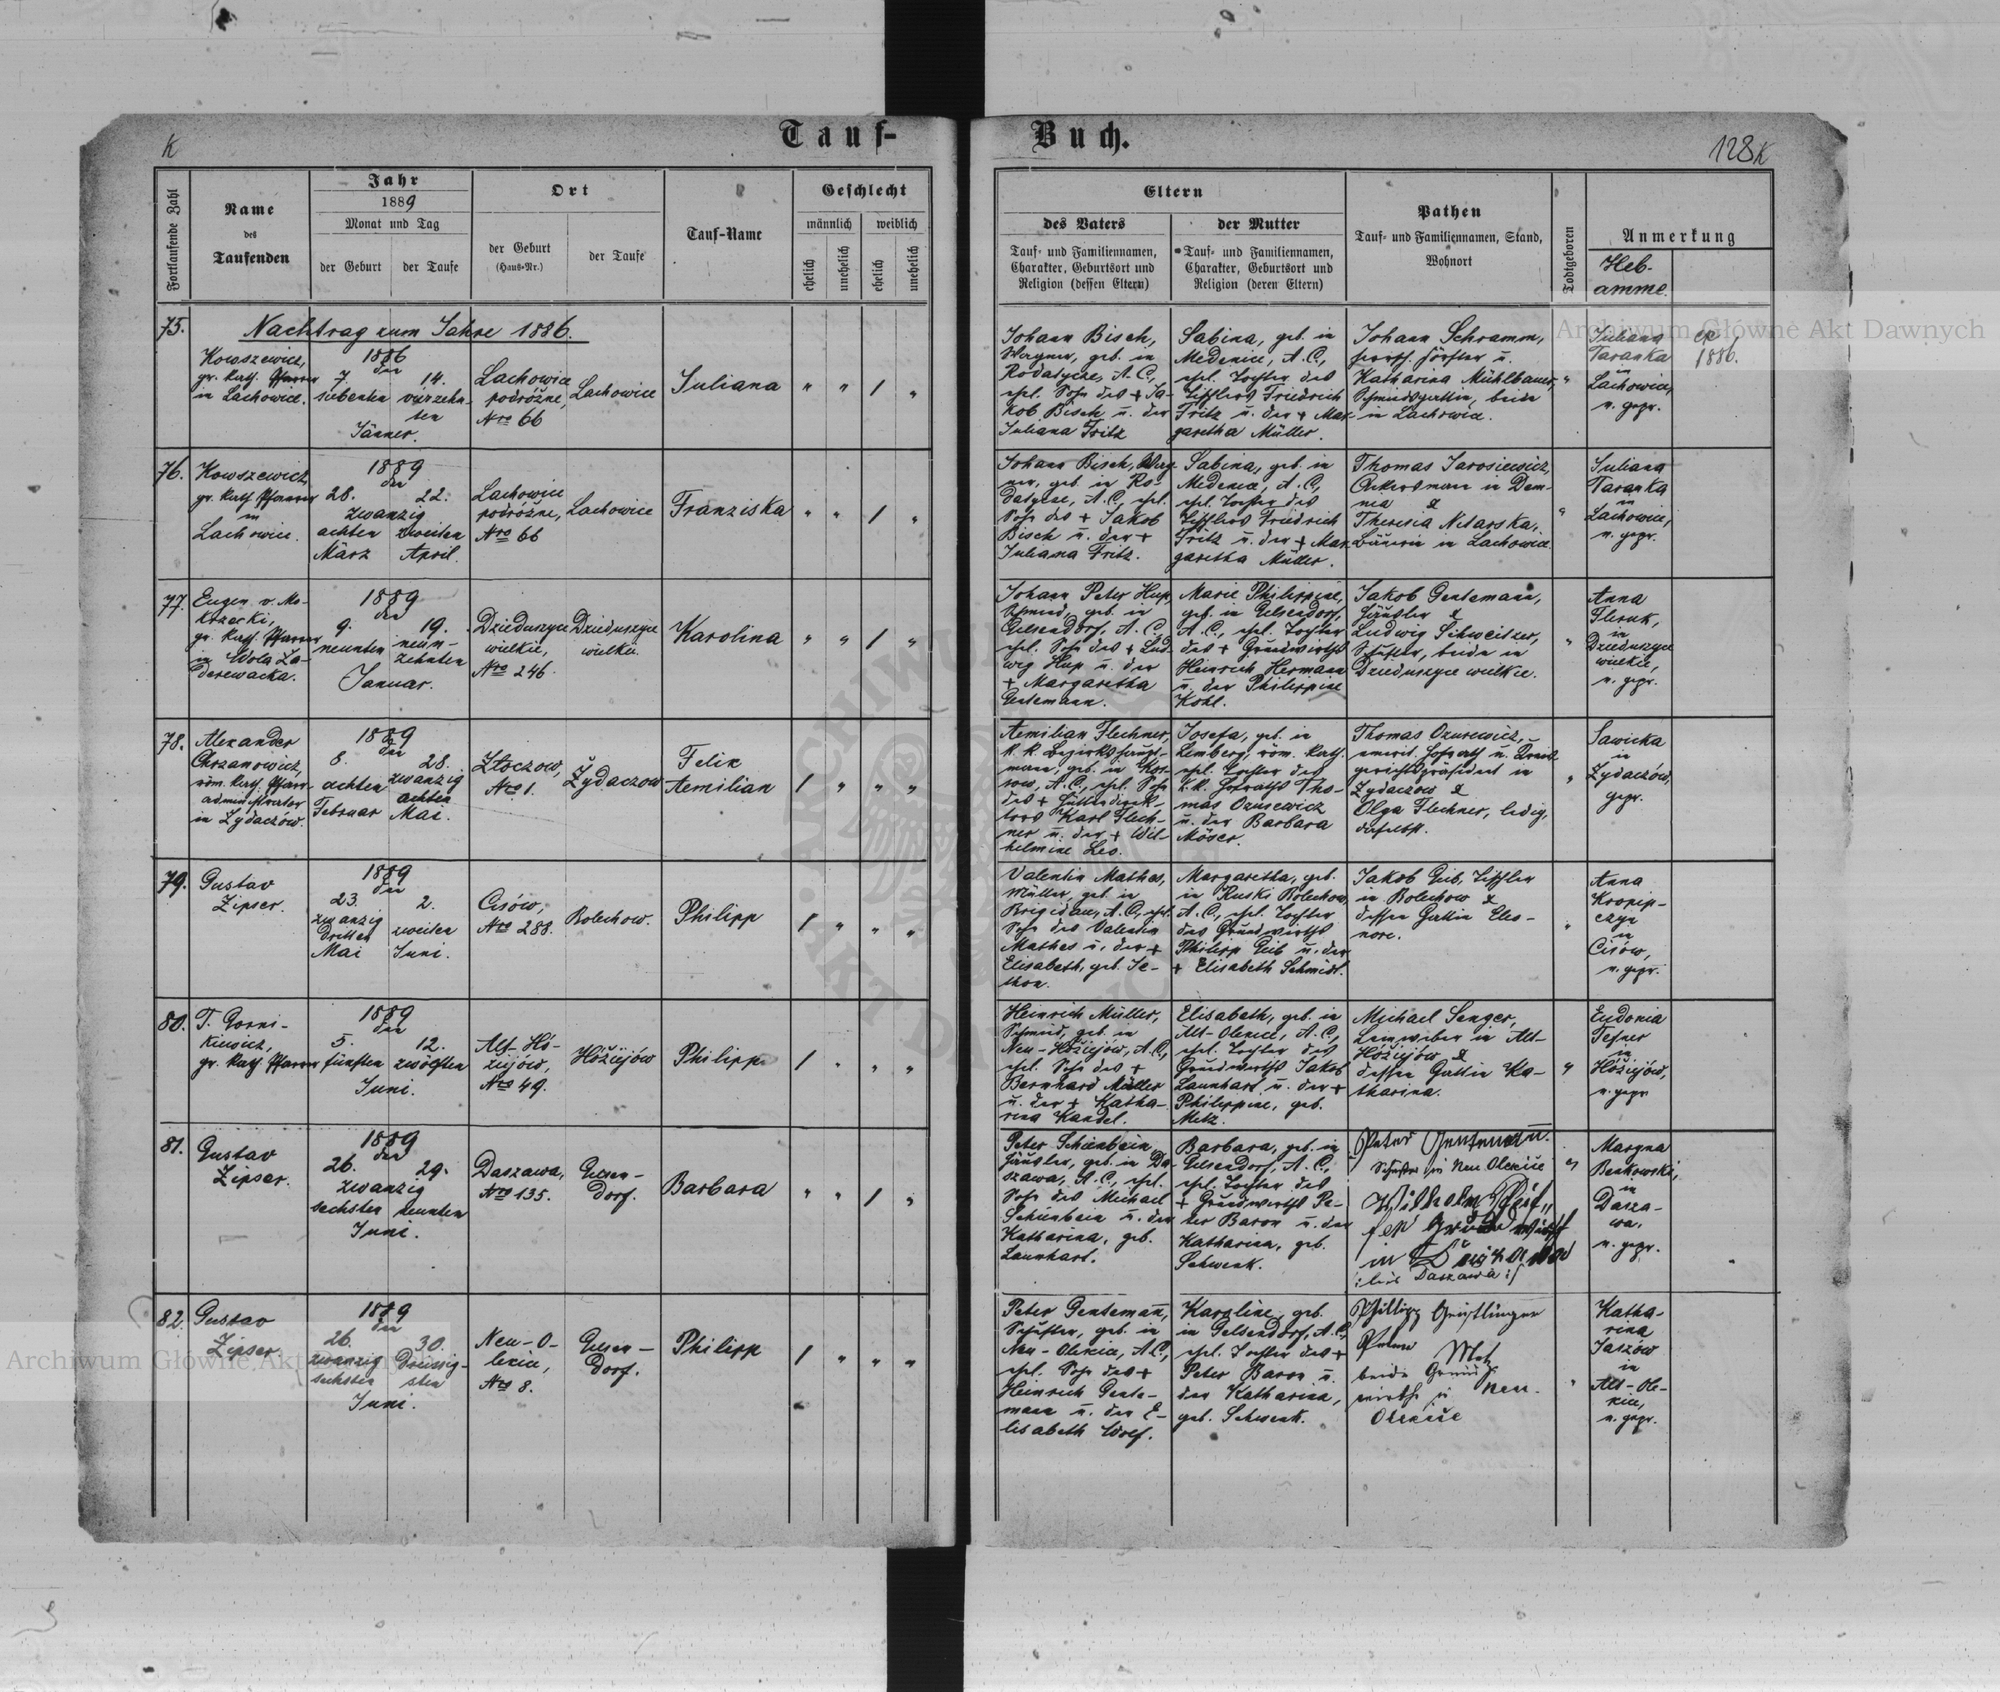 K
Tauf-Buch.
128 K
Fortlaufende Zahl
Name
des
Taufenden
Jahr
1889
Monat und Tag
der Geburt
der Taufe
Ort
der Geburt
(Haus-Nr.)
der Taufe
Tauf-Name
Geschlecht
männlich
weiblich
ehelich
unehelich
ehelich
unehelich
Eltern
des Vaters
Tauf- und Familiennamen,
Charakter, Geburtsort und
Religion (dessen Eltern)
der Mutter
Tauf- und Familiennamen,
Charakter, Geburtsort und
Religion (deren Eltern)
Pathen
Tauf- und Familiennamen, Stand,
Wohnort
Todtgeboren
Anmerkung
Heb-
amme.
75.
Nachtrag zum Jahre 1886.
Kowszewicz,
gr. kath. Pfarrer
in Lachowice.
1886
den
7.
siebenten
14.
vierzehn-
ten
Jänner.
Lachowice
podróżne,
Nro 66
Lachowice
Juliana
" " / "
Johann Bisch,
Wagner, geb. in
Rodatycze, A.C.,
ehel. Sohn des + Ja-
kob Bisch u. der
Juliana Fritz
Sabina, geb. in
Medenice, A.C.,
ehel. Tochter des
Tischlers Friedrich
Fritz u. der + Mar-
garetha Müller.
Johann Schramm,
herrsch. Förster u.
Katharina Mühlbauer,
Schmiedsgattin, beide
in Lachowice.
"
Juliana
Taranka
in
Lachowice,
n. gepr.
ex
1886.
76.
Kowszewicz
gr. kath. Pfarrer
in
Lachowice.
1889
den
28.
22.
zwanzig
achten
zweiten
März
April.
Lachowice
podróżne,
Nro 66
Lachowice
Franziska
" " / "
Johann Bisch, Wag-
ner, geb. in Ro-
datycze, A.C., ehel.
Sohn des + Jakob
Bisch u. der +
Juliana Fritz.
Sabina, geb. in
Medenice, A.C.,
ehel. Tochter des
Tischlers Friedrich
Fritz u. der + Mar-
garetha Müller.
Thomas Jarosiewicz,
Ackersmann in Dem-
nia &
Theresia Nitarska,
Bäuerin in Lachowice.
"
Juliana
Taranka
in
Lachowice,
n. gepr.
77.
Eugen v. Mo-
gr. kath. Pfarrer
in Wola Za-
derewacka.
1889
den
9.
neunten
19.
neun-
zehnten
Januar.
Dzieduszyce
wielkie,
Nro 246.
Dzieduszyce
wielkie.
Karolina
" " / "
Johann Peter Hup,
Schmied, geb. in
Gelsendorf, A.C.,
ehel. Sohn des + Lud-
wig Hup u. der
+ Margaretha
Gentemann.
Marie Philippine,
geb. in Gelsendorf,
A.C., ehel. Tochter
des + Grundwirths
Heinrich Hermann
u. der Philippine
Kohl.
Jakob Gentemann,
Häusler &
Ludwig Schweitzer,
Schuster, beide in
Dzieduszyce wielkie.
"
Anna
in
Dzieduszyce
wielkie,
n. gepr.
78.
Alexander
Chrzanowicz,
röm. kath. Pfarr-
administrator
in Żydaczów.
1889
den
8.
achten
Februar
28.
zwanzig
achten
Mai.
Złoczow,
Nro 1.
Żydaczow
Felix
Aemilian
/ " " "
Aemilian Flechner,
k. k. Bezirkshaupt-
mann, geb. in Kos-
sow, A.C., ehel. Sohn
des + Hüttendirek-
tors Karl Flech-
ner u. der + Wil-
helmine Leo.
Josefa, geb. in
Lemberg, röm. kath.
ehel. Tochter des
k.k. Hofraths Tho-
mas Ozurewicz
u. der Barbara
Möser.
Thomas Ozurewicz,
emerit. Hofrath u. Kreis-
gerichtspräsident in
Żydaczow &
Olga Flechner, ledig,
daselbst.
"
Sawicka
in
Żydaczów,
gepr.
79.
Gustav
Zipser.
1889
den
23.
zwanzig
dritten
Mai
2.
zweiten
Juni.
Cisów,
Nro 288.
Bolechow.
Philipp
/ " " "
Valentin Mathes,
Müller, geb. in
Brigidau, A.C., ehel.
Sohn des Valentin
Mathes u. der +
Elisabeth, geb. Je-
thon.
Margaretha, geb.
in Ruski Bolechow,
A.C., ehel. Tochter
des Grundwirths
Philipp Geib u. der
+ Elisabeth Schmidt.
Jakob Geib, Tischler
in Bolechow &
dessen Gattin Eleo-
nore.
"
Anna
Kropip-
czyn
in
Cisów,
n. gepr.
80.
T. Gorni-
kiewicz,
gr. kath. Pfarrer
1889
den
5.
fünften
12.
zwölften
Juni.
Alt-Hó-
żiejów,
Nro 49.
Hóżiejów
Philipp
/ " " "
Heinrich Müller,
Schmied, geb. in
Neu-Hóżiejów, A.C.,
ehel. Sohn des +
Bernhard Müller
u. der + Katha-
rina Kandel.
Elisabeth, geb. in
Alt-Olexice, A.C.,
ehel. Tochter des
Grundwirths Jakob
Launhart u. der +
Philippine, geb.
Metz.
Michael Senger,
Leinweber in Alt-
Hóżiejów &
dessen Gattin Ka-
tharina.
"
Eudonia
in
Hóżiejów,
n. gepr.
81.
Gustav
Zipser.
1889
den
26.
29.
zwanzig
sechsten
neunten
Juni.
Daszawa,
Nro 135.
Gelsen-
dorf.
Barbara
" " / "
Peter Scheinbein
Häusler, geb. in Da-
szawa, A.C., ehel.
Sohn des Michael
Scheinbein u. der
Katharina, geb.
Launhart.
Barbara, geb. in
Gelsendorf, A.C.,
ehel. Tochter des
+ Grundwirths Pe-
ter Baron u. der
Katharina, geb.
Schwenk.
Peter Gentemann.
Schuster in Neu Olexice
Grundwirth
in
Daszawa
"
Maryna
Benkowski,
in
Dasza-
wa,
n. gepr.
82.
Gustav
Zipser.
1889
den
26.
zwanzig
sechsten
30.
Dreissig-
sten
Juni.
Neu-O-
lexice,
Nro 8.
Gelsen-
dorf.
Philipp
/ " " "
Peter Gentemann,
Schuster, geb. in
Neu-Olexice, A.C.,
ehel. Sohn des +
Heinrich Gente-
mann u. der E-
lisabeth Wolf.
Karoline, geb.
in Gelsendorf, A.C.,
ehel. Tochter des +
Peter Baron u.
der Katharina,
geb. Schwenk.
Metz
beide Grund-
wirthe in Neu-
Olexice
"
Katha-
rina
Jaszów
in
Alt-Ole-
xice,
n. gepr.
Archiwum Główne Akt Dawnych
Archiwum Główne Akt Dawnych